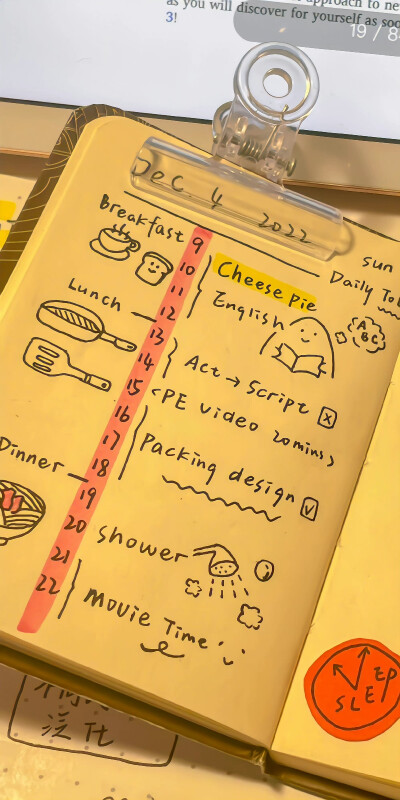 as you will discover for yourself as soo
3!
19 / 8
Dec. 4 2022
sun
Daily To
Breakfast
9
10
Cheese Pie
11
English
A
BC
Lunch
12
13
14
Act → Script x
15
<PE video 20mins>
16
17
Packing design v
Dinner
18
19
20
shower
21
22
Movie Time
SLEEP
泛化